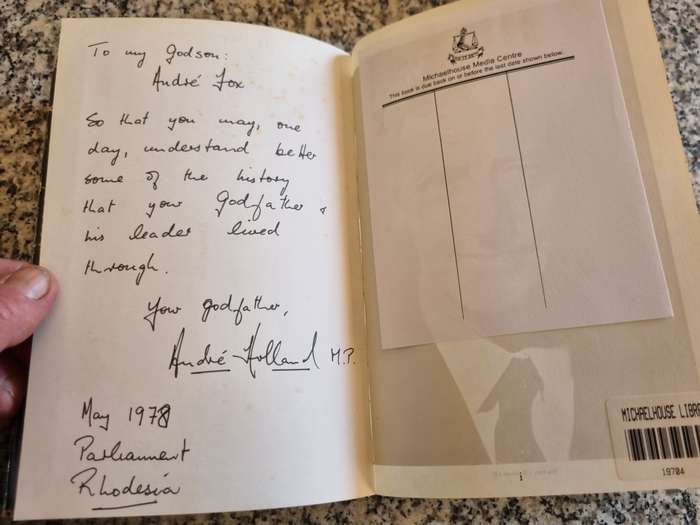 To my godson:
André Fox
So that you may, one
day, understand better
some of the history
that your Godfather &
his leader lived
through.
Your godfather,
André Holland M.P.
May 1978
Parliament
Rhodesia
Michaelhouse Media Centre
This book is due back on or before the last date shown below.
MICHAELHOUSE LIBRA
19704
i